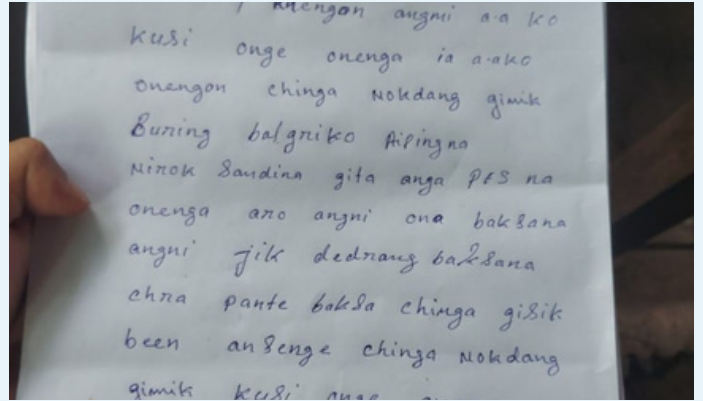 angmi a-a ko
kusi onge onenga ia a-ako
onengon chinga Nokdang gimik
Buring balgriko Aipingna
Ninok Sandina gita anga PES na
onenga aro angni ona baksana
angni jik dedrang baksana
chra pante baksa chinga gisik
been ansenge chinga Nokdang
gimik kusi onge